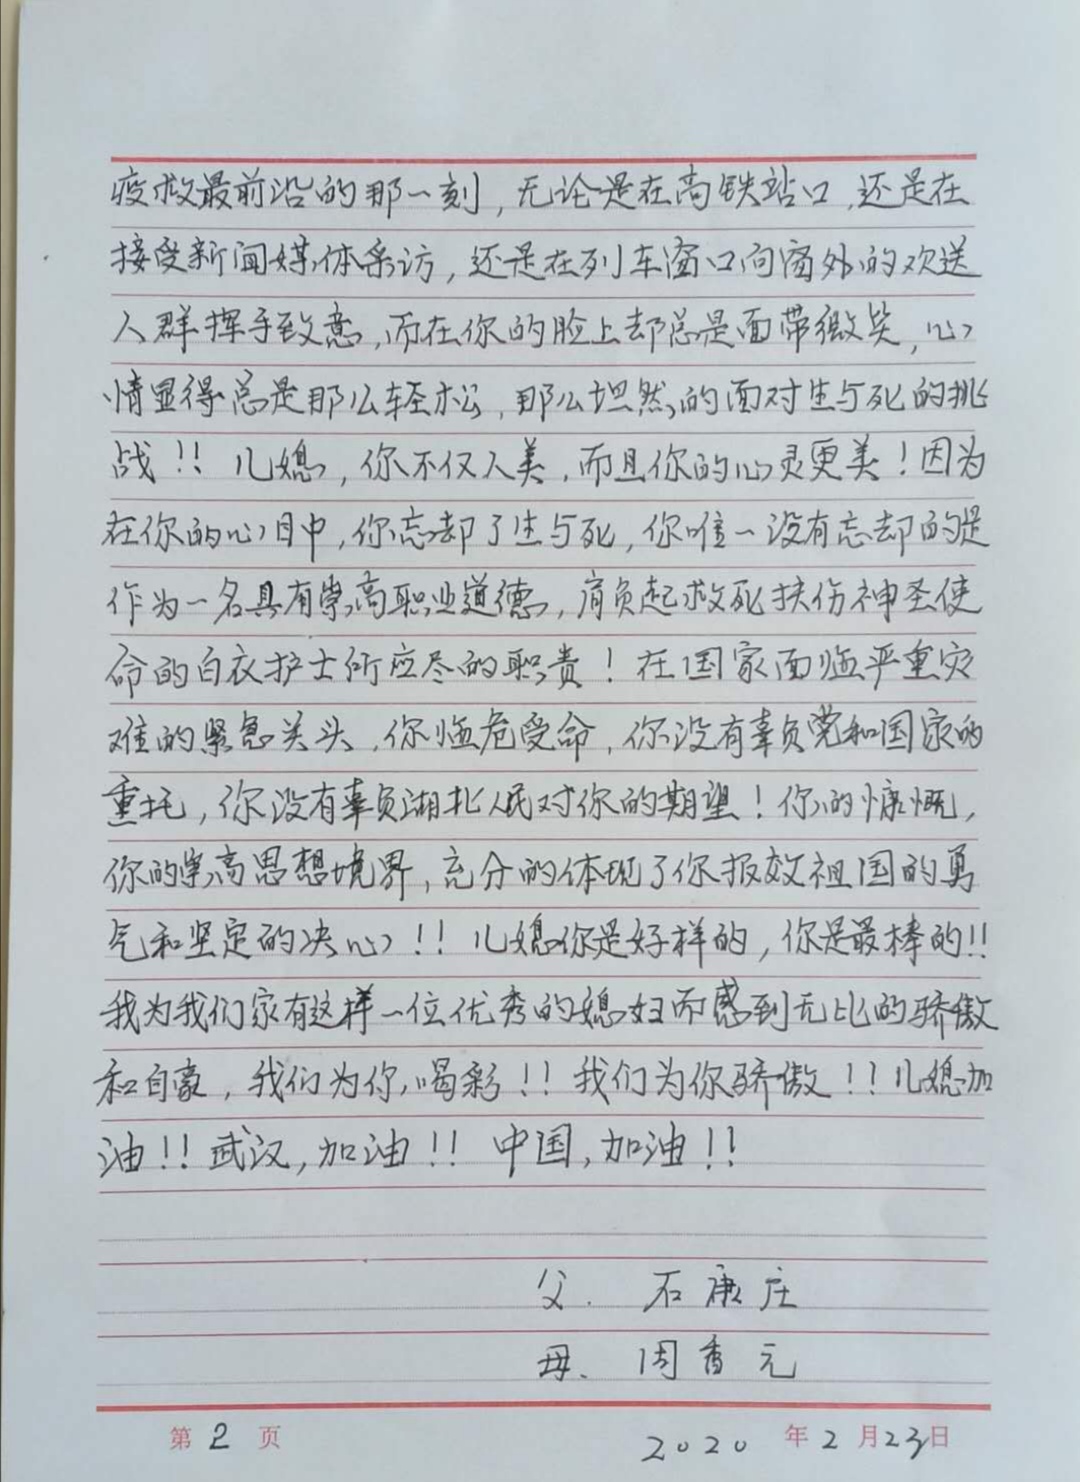 疫救最前沿的那一刻，无论是在高铁站口，还是在
接受新闻媒体采访，还是在列车窗口向窗外的欢送
人群挥手致意，而在你的脸上却总是面带微笑，心
情显得总是那么轻松，那么坦然的面对生与死的挑
战！！儿媳，你不仅人美，而且你的心灵更美！因为
在你的心目中，你忘却了生与死，你唯一没有忘却的是
作为一名具有崇高职业道德，肩负起救死扶伤神圣使
命的白衣护士所应尽的职责！在国家面临严重灾
难的紧急关头，你临危受命，你没有辜负党和国家的
重托，你没有辜负湖北人民对你的期望！你的慷慨，
你的崇高思想境界，充分的体现了你报效祖国的勇
气和坚定的决心！！儿媳你是好样的，你是最棒的！！
我为我们家有这样一位优秀的媳妇而感到无比的骄傲
和自豪，我们为你喝彩！！我们为你骄傲！！儿媳加
油！！武汉，加油！！中国，加油！！
父. 石康庄
母. 周香元
第2页 2020年2月23日